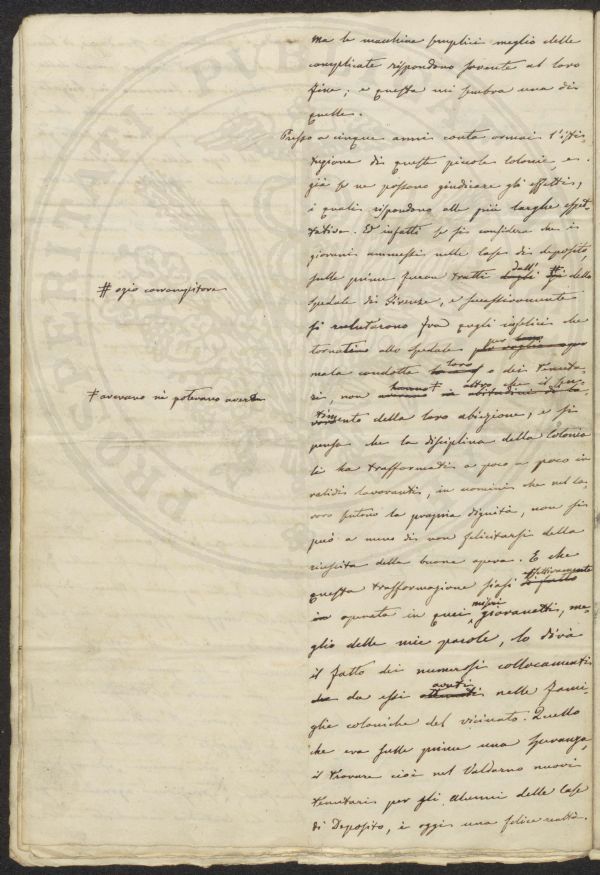 Ma le macchine semplici meglio delle
complicate rispondono sovente al loro
fine; e questa mi sembra una di
quelle.
Presso a cinque anni conta ormai l'isti-
tuzione di queste piccole colonie, e
già se ne possono giudicare gli effetti,
i quali rispondono alle più larghe aspet-
tative. Ed infatti se si considera che i
giovani ammessi nelle Case di deposito,
sulle prime furon tratti dall' # dello
Spedale di Firenze, e successivamente
si reclutarono fra quegli infelici che
tornarono allo Spedale per loro
mala condotta o dei tenuta-
ri, non hanno † altro che il sen-
timento della loro abiezione, e si
pensa che la disciplina della Colonia
li ha trasformati a poco a poco in
validi lavoranti, in uomini che nel la-
voro sentono la propria dignità, non si
può a meno di non felicitarsi della
riuscita della buona opera. E che
questa trasformazione siasi effettivamente
operata in quei miseri giovanetti, me-
glio delle mie parole, lo dirà
il fatto dei numerosi collocamenti
da essi avuti nelle fami-
glie coloniche del vicinato. Quello
che era sulle prime una speranza,
il trovare cioè nel Valdarno nuovi
tenutari per gli alunni delle Case
di Deposito, è oggi una felice realtà.
# ozio corrompitore
† avevano nè potevano avere
PROSPERITATI PVBLICAE